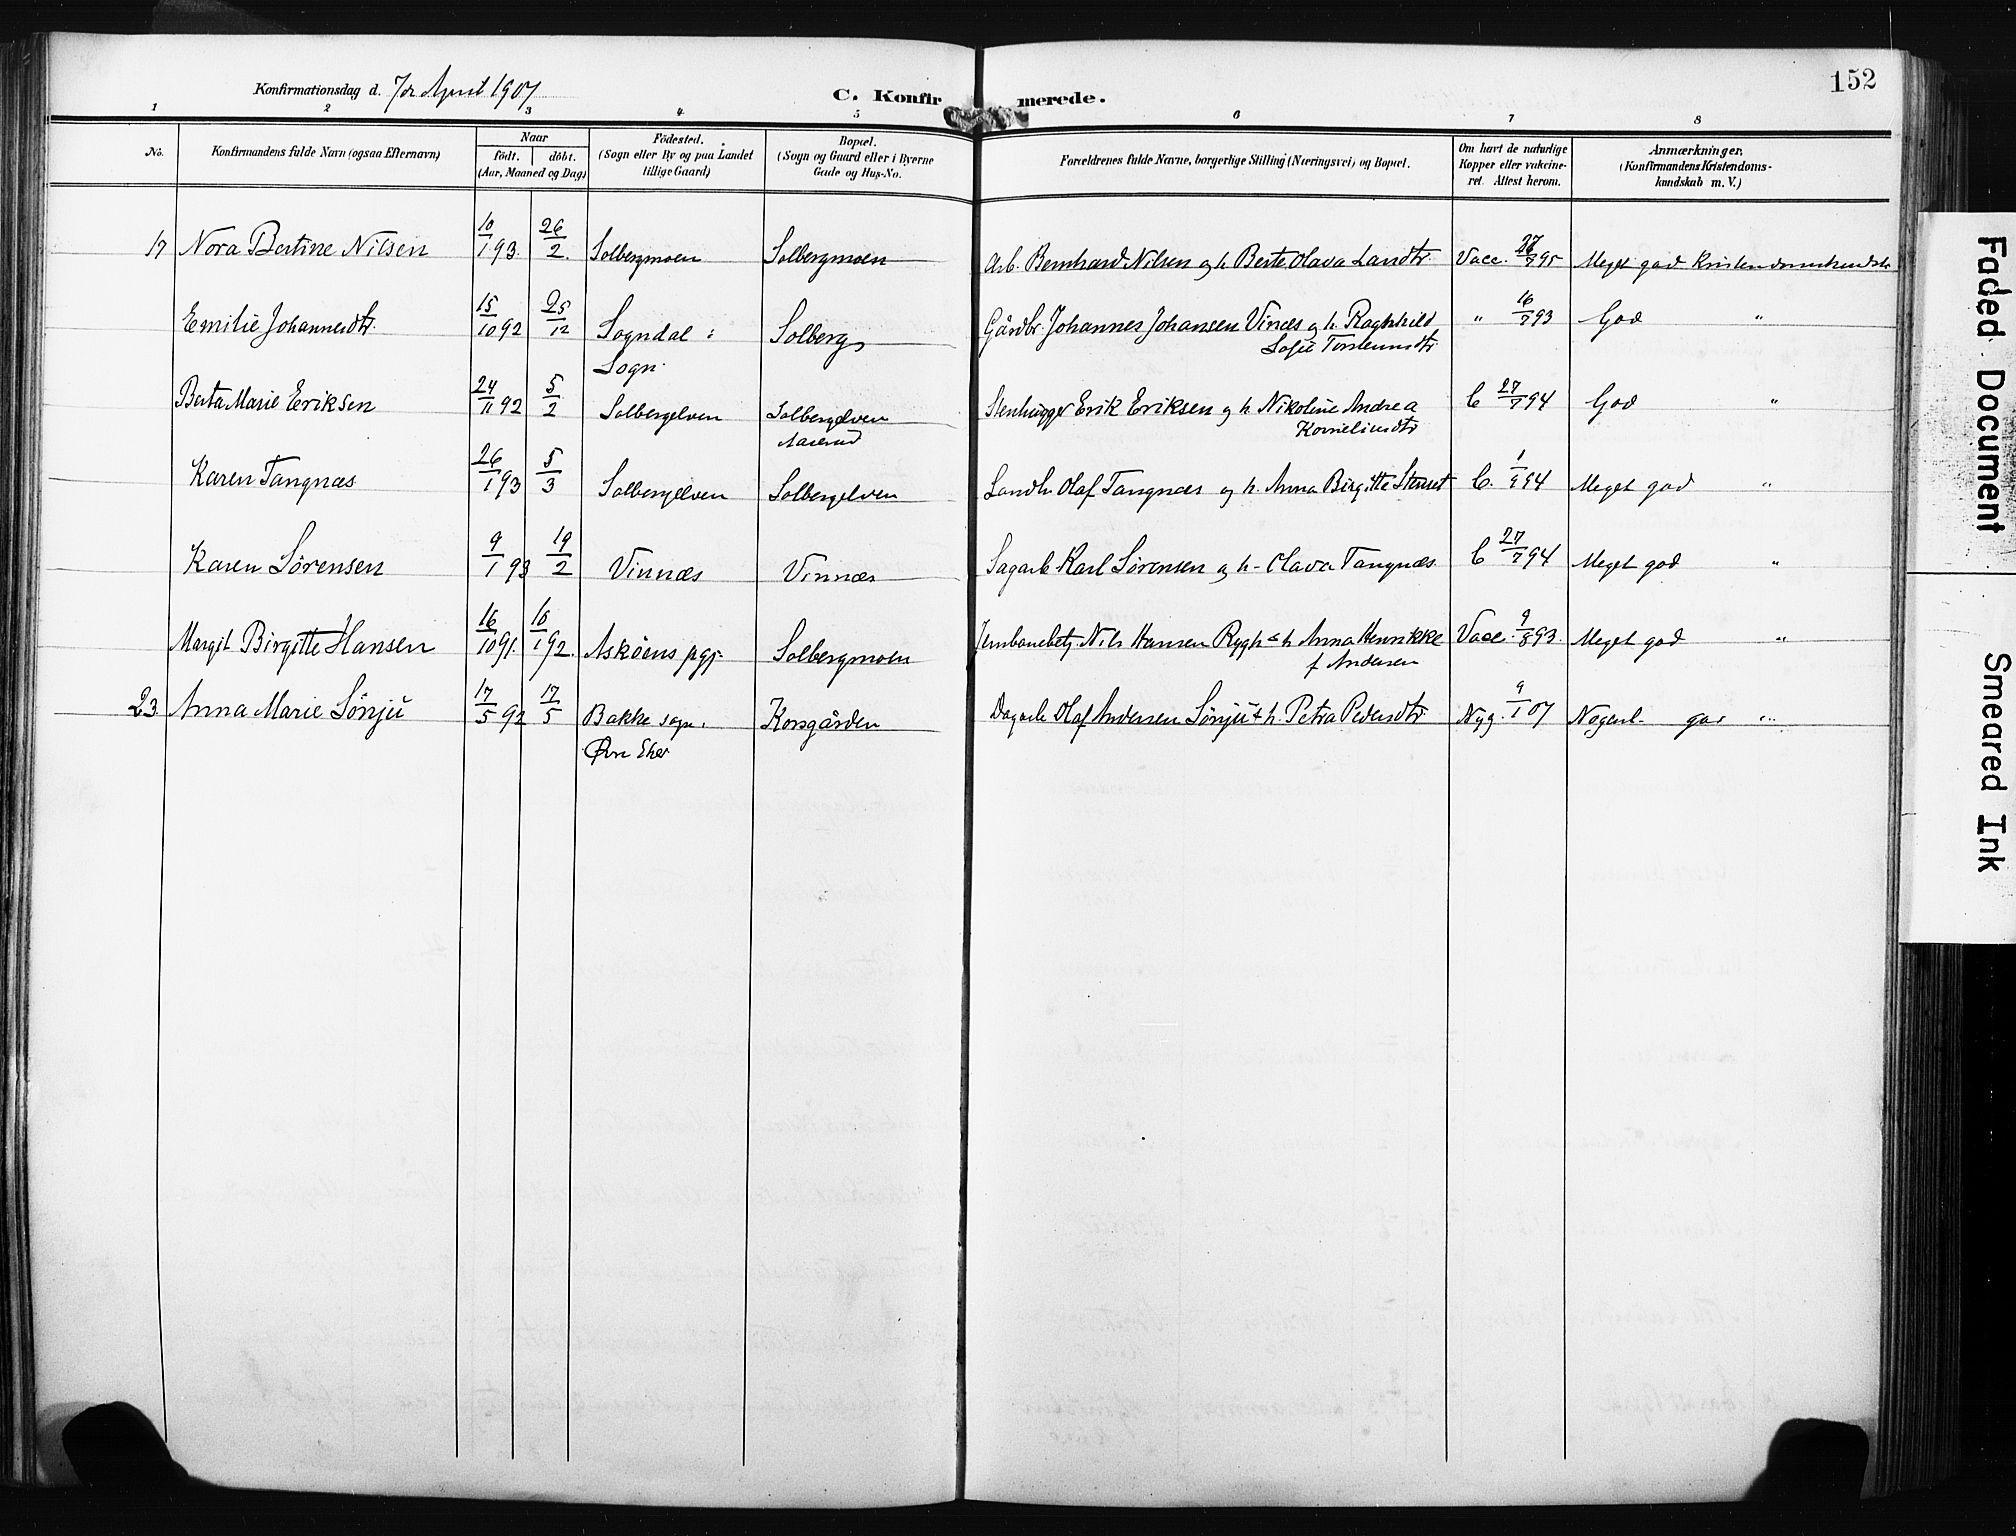 152
Konfirmationsdag d. 7de April 1907
C. Konfirmerede.
1 2 3 4 5 6 7 8
No.
Konfirmandens fulde Navn (ogsaa Efternavn)
Naar
födt. döbt.
(Aar, Maaned og Dag)
Födested.
(Sogn eller By og paa Landet
tillige Gaard)
Bopæl.
(Sogn og Gaard eller i Byerne
Gade og Hus-No.
Forældrenes fulde Navne, borgerlige Stilling (Næringsvei) og Bopæl.
Om havt de naturlige
Kopper eller vakcine-
ret. Attest herom.
Anmærkninger,
(Konfirmandens Kristendoms-
kundskab m. V.)
17 Nora Bertine Nilsen 10/1 93. 26/2. Solbergmoen Solbergmoen Arb. Bernhard Nilsen og h. Berte Olava Larsdtr. Vacc. 27/7 95 Meget god Kristendomskundsk.
Emilie Johannesdtr. 15/10 92 25/12 Sogndal i Solberg Gårdbr. Johannes Johansen Vinæs og h. Raghhild " 16/7 93 God "
Sogn.
Sofie
Berta Marie Eriksen 24/11 92 5/2 Solbergelven Solbergelven Stenhugger Erik Eriksen og h. Nikoline Andrea C 27/7 94 God "
Aaserud
Korneliusdtr
Karen Tangnæs 26/1 93 5/3 Solbergelven Solbergelven Landh. Olaf Tangnæs og h. Anna Birgitte Stenset C. 1/9 94 Meget god "
Karen Sørensen 9/1 93 19/2 Vinnæs Vinnæs Sagarb. Karl Sørensen og h. Olava Tangnæs. C 27/7 94 Meget god "
Margit Birgitte Hansen 16/10 91. 10/1 92. Askøens pgj. Solbergmoen Jernbanebetj. Nils Hansen Rygh & h. Anna Henrikke Vacc. 9/8 93. Meget god "
f. Andersen
23. Anna Marie Sönju 17/5 92 17/5 Bakke sogn. Korsgården Dagarb. Olaf Andersen Sönju & h. Petra Pedersdtr. Nyg. 9/1 07 Nogenl. god "
Øvre Eker
Faded Document
Smeared Ink